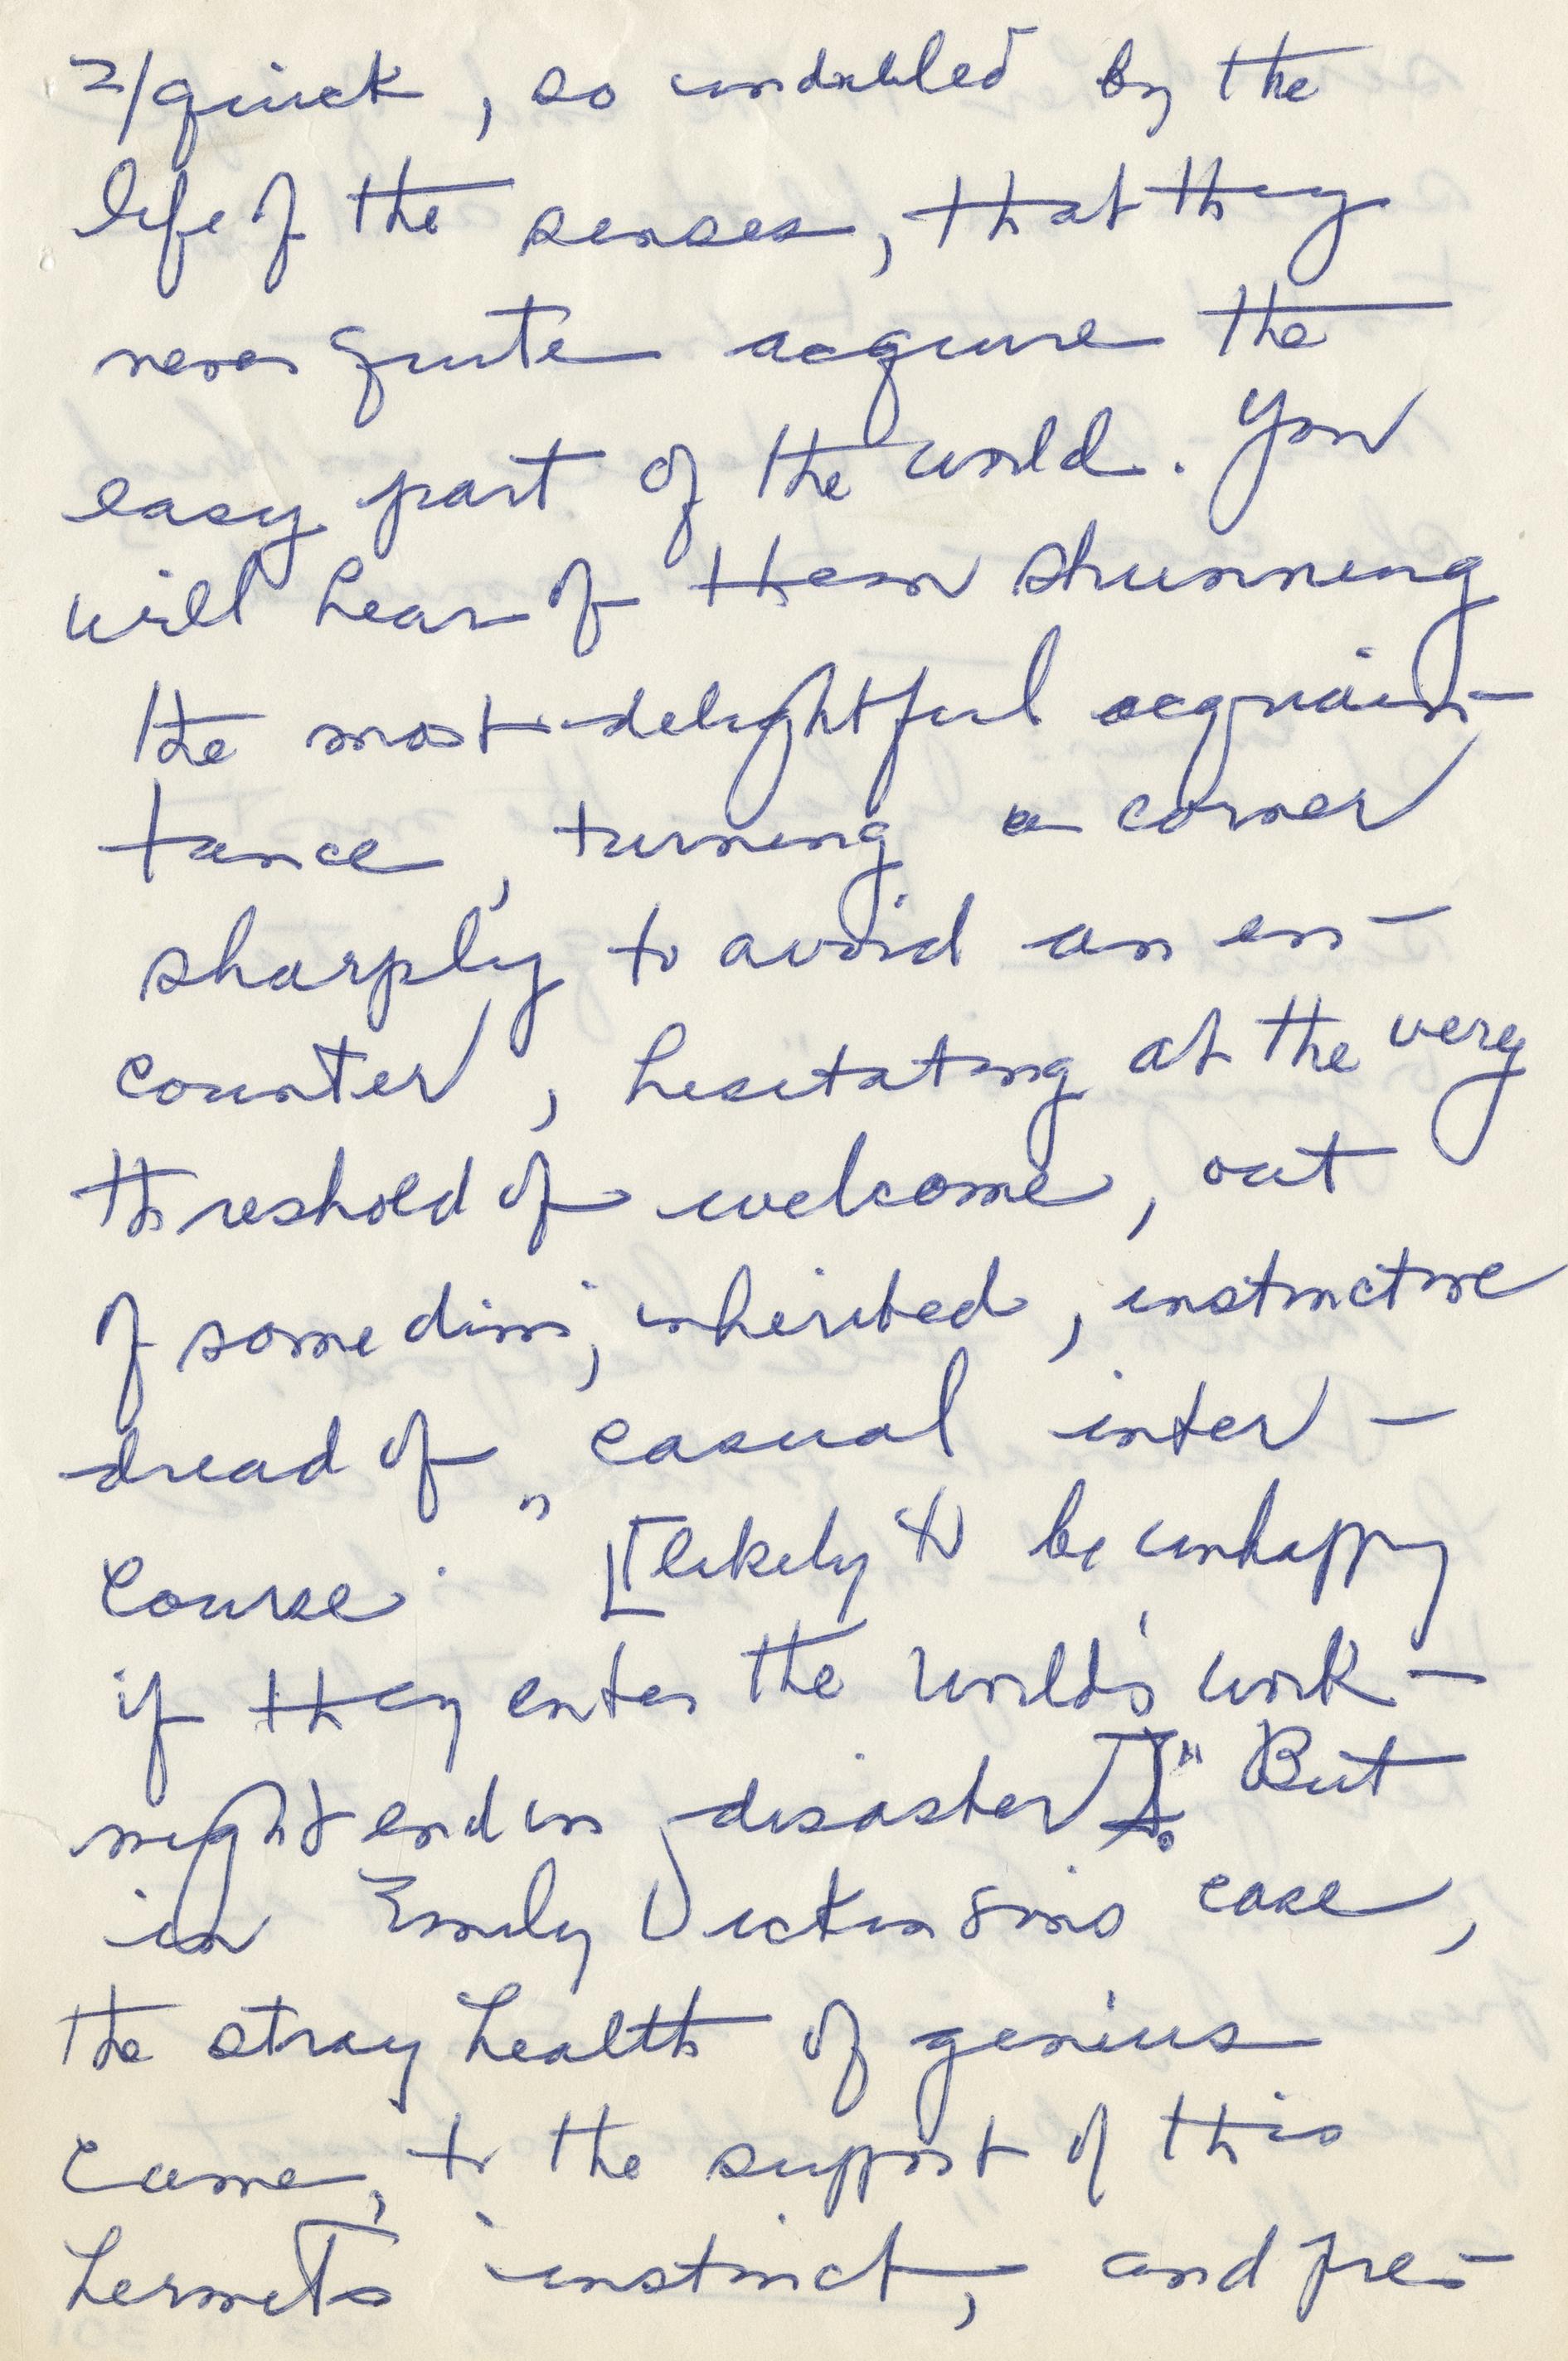 2/quick, so undulled by the
life of the senses, that they
never quite acquire the
easy part of the world. You
will hear of them shunning
the most delightful acquain-
tance, turning a corner
sharply to avoid an en-
counter, hesitating at the very
threshold of welcome, out
of some dim, inherited, instinctive
dread of casual inter-
course." [likely to be unhappy
if they enter the world's work-
might end in disaster]." But
in Emily Dickinson's case,
the stray health of genius
came, to the support of this
hermit's instinct, and pre-